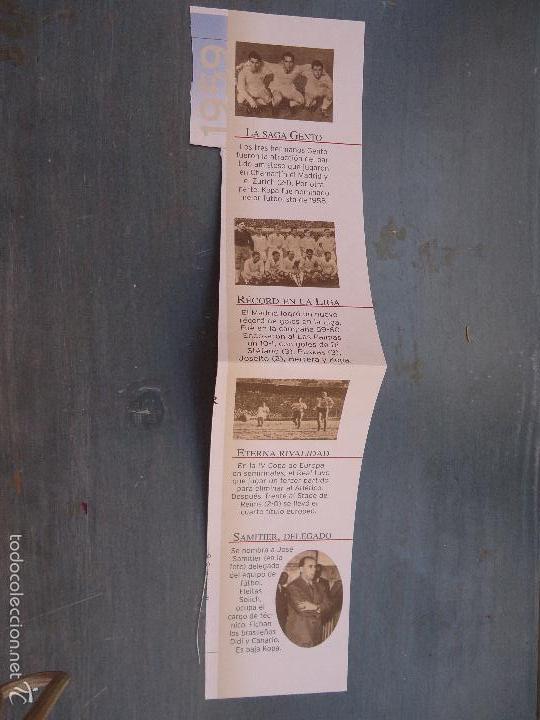 1959
LA SAGA GENTO
Los tres hermanos Gento
fueron la atracción del par-
tido amistoso que jugaron
en Chamartín el Madrid y
el Zurich (2-1). Por otra
parte, Kopa fue nominado
mejor futbolista de 1958.
RÉCORD EN LA LIGA
El Madrid logró un nuevo
récord de goles en la Liga.
Fue en la campaña 59-60.
Endosaron al Las Palmas
un 10-1, con goles de Di
Stéfano (3), Puskas (3),
Joseito (2), Herrera y Kopa.
ETERNA RIVALIDAD
En la IV Copa de Europa
en semifinales, el Real tuvo
que jugar un tercer partido
para eliminar al Atlético.
Después, frente al Stade de
Reims (2-0) se llevó el
cuarto título europeo.
SAMITIER, DELEGADO
Se nombra a José
Samitier (en la
foto) delegado
del equipo de
fútbol.
Fleitas
Solich,
ocupa el
cargo de téc-
nico. Fichan
los brasileños
Didí y Canario.
Es baja Kopa.
todocoleccion.net